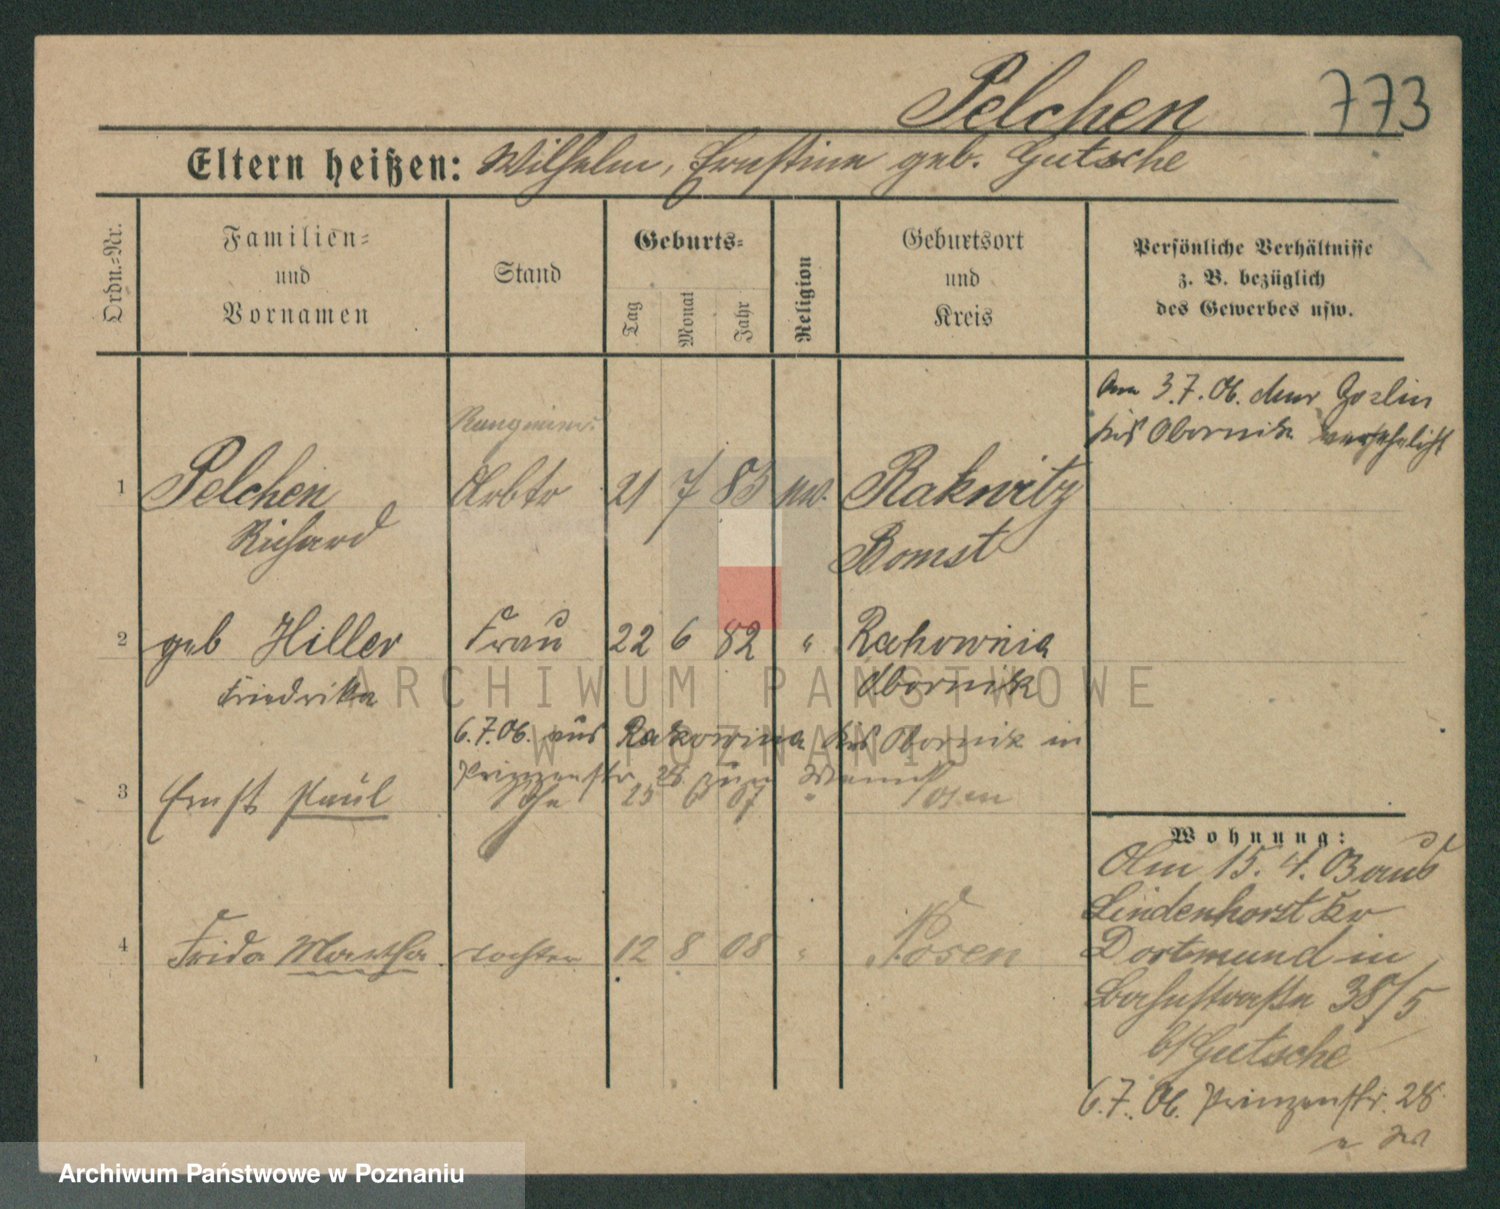 Pelchen 773
Eltern heißen: Wilhelm, Ernstine geb. Gutsche
Ordn.-Nr.
Familien-
und
Vornamen
Stand
Geburts-
Tag
Monat
Jahr
Religion
Geburtsort
und
Kreis
Persönliche Verhältnisse
z. B. bezüglich
des Gewerbes usw.
3.7.06.
Obornik
1 Pelchen Arbtr 21 7 83 Rakwitz
Richard Bomst
2 geb Hiller Frau 22 6 82 " Rakownia
Friedrika Obornik
6.7.06. aus Rakowina Krs Obornik in
Prinzenstr. 28 zum
3 Ernst Paul 25 6 07 " Posen
Wohnung:
Am 15. 4. 03 aus
Lindenhorst Kr
4 Frida Martha Tochter 12 8 08 " Posen
Dortmund in
Bahnstraße 38/5
b/Gutsche
6.7.06. Prinzenstr. 28
ARCHIWUM PAŃSTWOWE
W POZNANIU
Archiwum Państwowe w Poznaniu